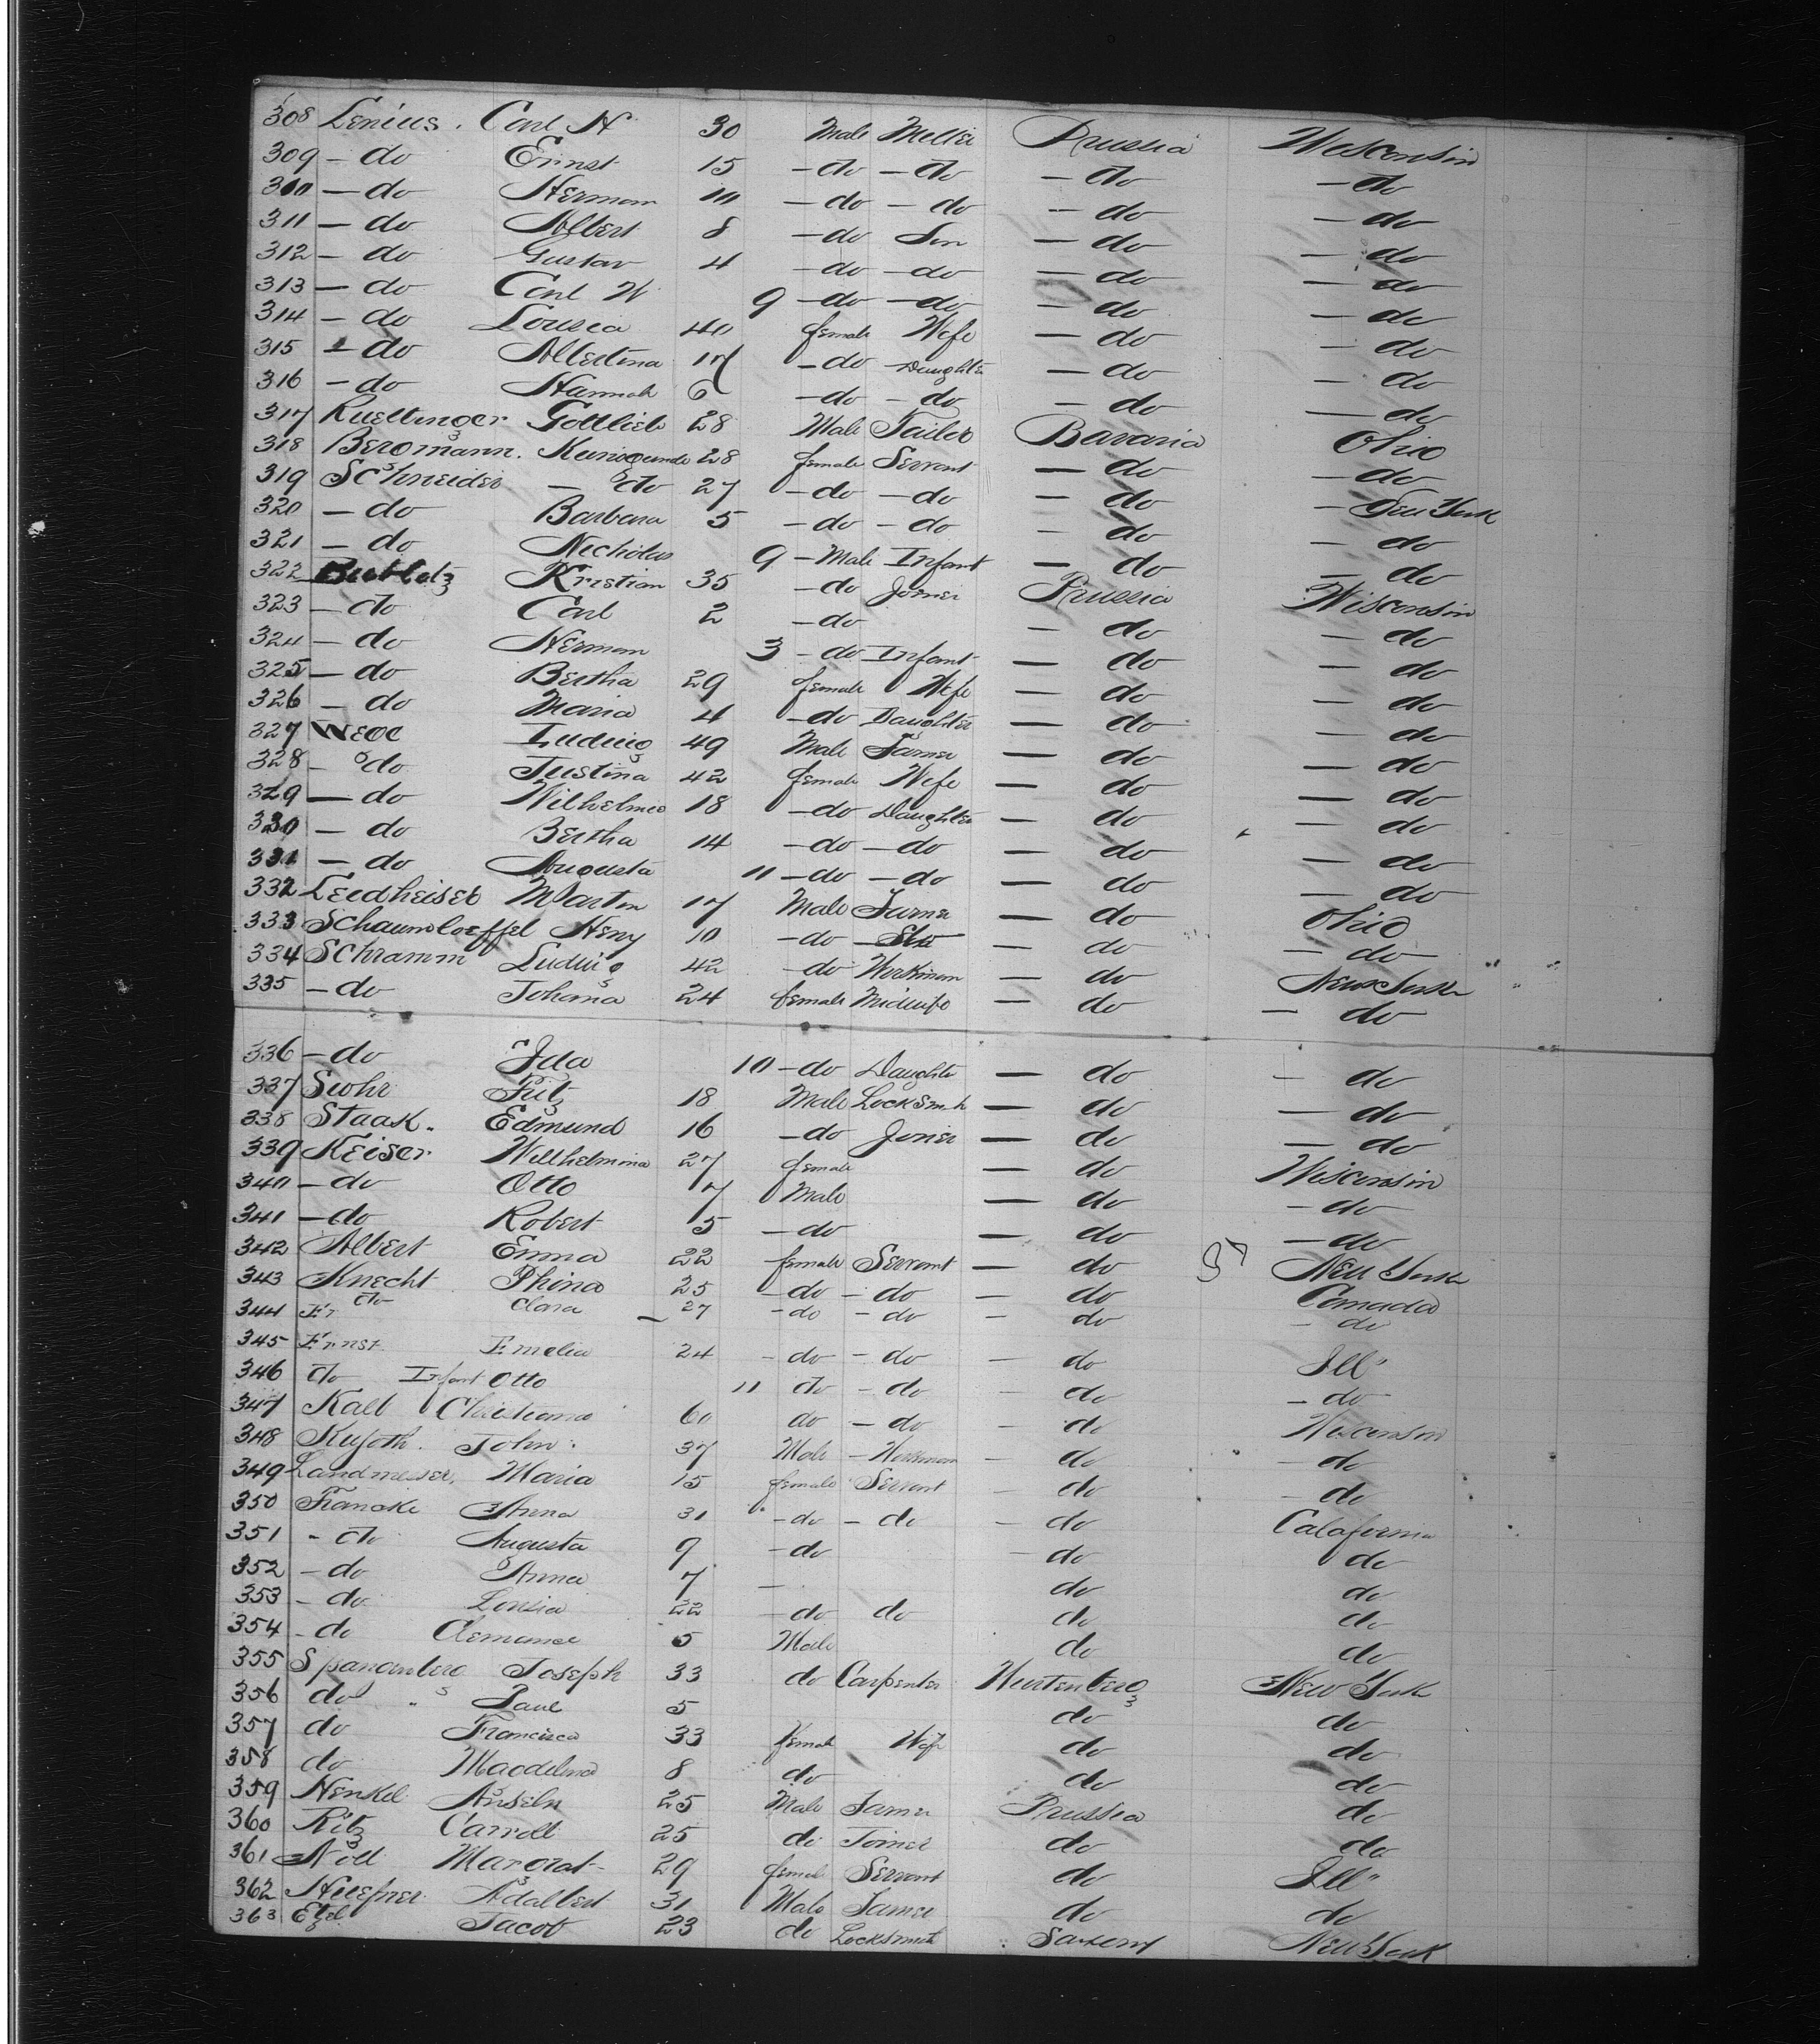 308 Lenius. Carl H 30 Male Miller Prussia Wisconsin
309 - do Ernst 15 - do - do - do - do
310 - do Herman 10 - do - do - do - do
311 - do Albert 8 - do Son - do - do
312 - do Gustav 4 - do - do - do - do
313 - do Carl W 9 - do - do - do - do
314 - do Lousia 40 female Wife - do - do
315 - do Albertina 17 - do - Daughter - do - do
316 - do Hannah 6 - do - do - do - do
317 Ruettinger Gottlieb 28 Male Tailor Bavaria Ohio
318 Bergmann. Kunigunde 28 female Servant - do - do
319 Schneider - do 27 - do - do - do - New York
320 - do Barbara 5 - do - do - do - do
321 - do Nicholas 9 - Male Infant - do - do
322 Kristian 35 - do Joiner Prussia Wisconsin
323 - do Carl 2 - do - do - do
324 - do Herman 3 - do Infant - do - do
325 - do Bertha 29 female Wife - do - do
326 - do Maria 4 - do Daughter - do - do
327 Wege Ludwig 49 Male Farmer - do - do
328 - do Justina 42 female Wife - do - do
329 - do Wilhelmia 18 - do Daughter - do - do
330 - do Bertha 14 - do - do - do - do
331 - do Augusta 11 - do - do - do - do
332 Leidheiser Martin 17 Male Farmer - do Ohio
333 Schaumloeffel Heny 10 - do - do - do
334 Schramm Ludwig 42 - do Workman - do New York
335 - do Johana 24 female Midwife - do - do
336 - do Ida 10 - do Daughter - do - do
337 Fritz 18 Male Locksmith - do - do
338 Staak. Edmund 16 - do Joiner - do - do
339 Keiser Willhelmina 27 female - do Wisconsin
340 - do Otto 7 Male - do - do
341 - do Robert 5 - do - do - do
342 Albert Emma 22 female Servant - do New York
343 Knecht Phina 25 - do - do - do Canada
344 do Clara - 27 - do - do - do - do
345 Ernst Emelia 24 - do - do - do Ill"
346 do Infant Otto 11 do - do - do - do
347 Kalb Christiana 60 do - do - do Wisconsin
348 Kujoth. John 37 Male - Workman - do - do
349 Landmesser, Maria 15 female Servant - do - do
350 Francke Anna 31 - do - do - do Calafornia
351 - do Augusta 9 - do - do do
352 - do Anna 7 - do do
353 - do Lousia 22 - do do do do
354 - do Clemance 5 Male do do
355 Spangenberg Joseph 33 do Carpenter Wurtenberg New York
356 do " Paul 5 do do
357 do Francisca 33 female Wife do do
358 do Magdelina 8 do do do
359 Henkel Anseln 25 Male Farmer Prussia do
360 Ritz Carroll 25 do Joiner do do
361 Noll Margrat 29 female Servant do Ill"
362 Huefner Adalbert 31 Male Farmer do do
363 Etzel Jacob 23 do Locksmith Saxony New York